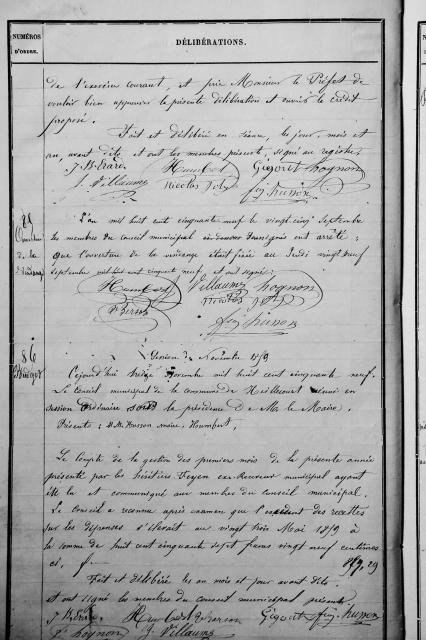 NUMÉROS
D'ORDRE.
DÉLIBÉRATIONS.
de l'exercice courant, et prie Monsieur le Préfet de
vouloir bien approuver la présente délibération et ouvrir le crédit
proposé.
Fait et délibéré en séance, les jour, mois et
an, avant dits, et ont les membres présents, signé au registre
Humbert Gigout hognon
J. Villaume Nicolas husson
L'an mil huit cent cinquante neuf le vingt cinq Septembre
les membres du Conseil municipal ont arrêté :
que l'ouverture de la vendange était fixée au Jeudi vingt neuf
septembre mil huit cent cinquante neuf et ont signé :
Humbert Villaume hognon
husson
86
Budget
Session de Novembre 1859
Cejourd'hui Novembre mil huit cent cinquante neuf.
Le Conseil municipal de la commune de Heillecourt réuni en
session ordinaire sous la présidence de Mr le Maire.
Présents : MM. Husson maire, Humbert,
Le Compte de la gestion des premiers mois de la présente année
présenté par les héritiers ex-Receveur municipal ayant
été lu et communiqué aux membres du Conseil municipal.
Le Conseil a reconnu après examen que l'excédent des recettes
sur les dépenses s'élevait au vingt trois Mai 1859 à
la somme de huit cent cinquante sept francs vingt neuf centimes
ci. f. 857,29
Fait et délibéré les an mois et jour avant dits
et ont signé les membres du conseil municipal présents
Humbert Gigout husson
hognon J. Villaume